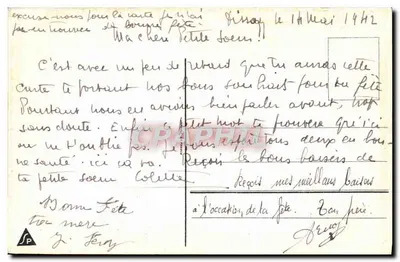 excuse-nous pour la carte je n'ai
pas en trouver de bonne fête
Dissay le 14 Mai 1942
Ma chère Petite Soeur!
C'est avec un peu de retard que tu auras cette
carte te portant nos bons souhaits pour ta fête
Pourtant nous en avions bien parler avant, trop
sans doute. Enfin, petit mot te prouvera qu'ici
on ne t'oublie pas. tous deux en bon-
ne santé: ici ça va. Reçois les bons baisers de
ta petite soeur Colette
CPARAMA
Reçois mes meilleurs baisers
à l'occasion de ta fête. Ton père
Bonne Fête
ta mère